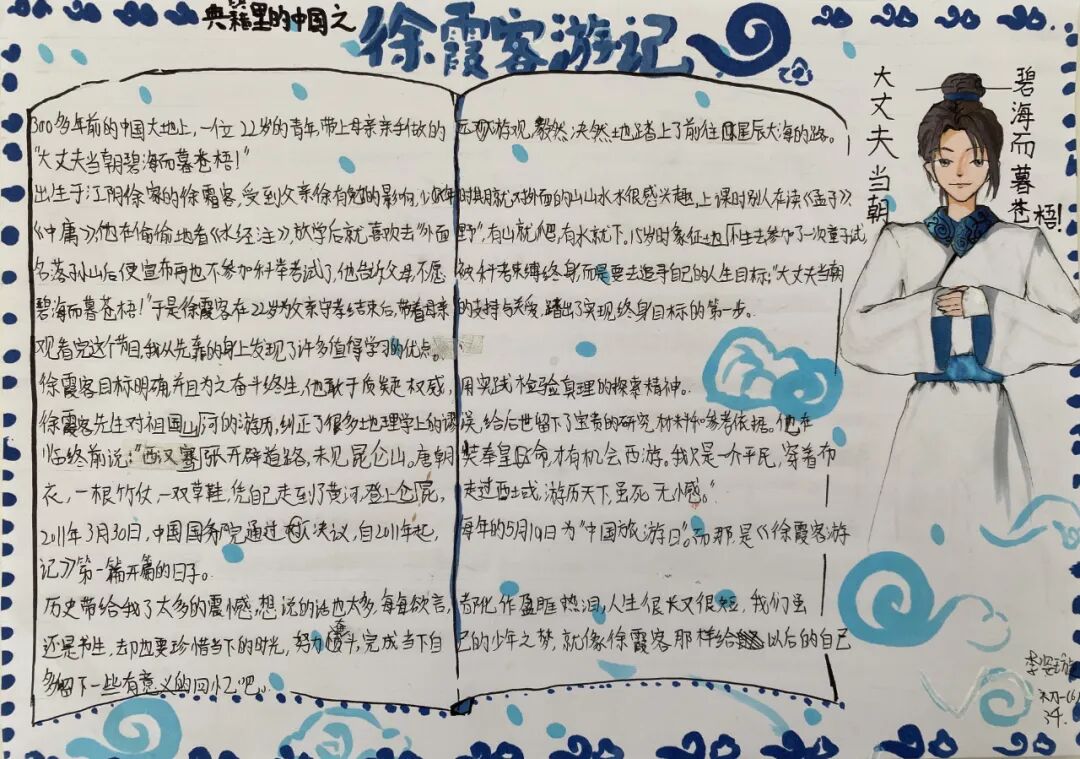 典籍里的中国之
徐霞客游记
300多年前的中国大地上，一位22岁的青年，带上母亲亲手做的远游冠，毅然决然地踏上了前往星辰大海的路。
"大丈夫当朝碧海而暮苍梧！"
出生于江阴徐家的徐霞客，受到父亲徐有勉的影响，少年时期就对外面的山山水水很感兴趣，上课时别人在读《孟子》、
《中庸》，他在偷偷地看《水经注》，放学后就喜欢去"外面野"，有山就爬，有水就下。15岁时象征地去参加了一次童子试，
名落孙山后便宣布再也不参加科举考试了，他告诉父母不愿被科考束缚终身而是要去追寻自己的人生目标："大丈夫当朝
碧海而暮苍梧！"于是徐霞客在22岁为父亲守孝结束后，带着母亲的支持与关爱，踏出了实现终身目标的第一步。
观看完这个节目，我从先辈的身上发现了许多值得学习的优点。
徐霞客目标明确并且为之奋斗终生，他敢于质疑权威，用实践检验真理的探索精神。
徐霞客先生对祖国山河的游历，纠正了很多地理学上的谬误，给后世留下了宝贵的研究材料和参考依据。他在
临终前说："西汉骞张开辟道路，未见昆仑山。唐朝玄奘奉皇命才有机会西游。我只是一介平民，穿着布
衣，一根竹杖，一双草鞋，凭自己走到了黄河，登上仓昆，走过西土域，游历天下，虽死无憾。"
2011年3月30日，中国国务院通过决议，自2011年起，每年的5月19日为"中国旅游日"。而那是《徐霞客游
记》第一篇开篇的日子。
历史带给我了太多的震憾，想说的话也太多，每每欲言，都化作盈眶热泪，人生很长又很短，我们虽
还是书生，去却也要珍惜当下的时光，努力奋斗，完成当下自己的少年之梦，就像徐霞客那样给以后的自己
多留下一些有意义的回忆吧。
大丈夫当朝
碧海而暮苍梧！